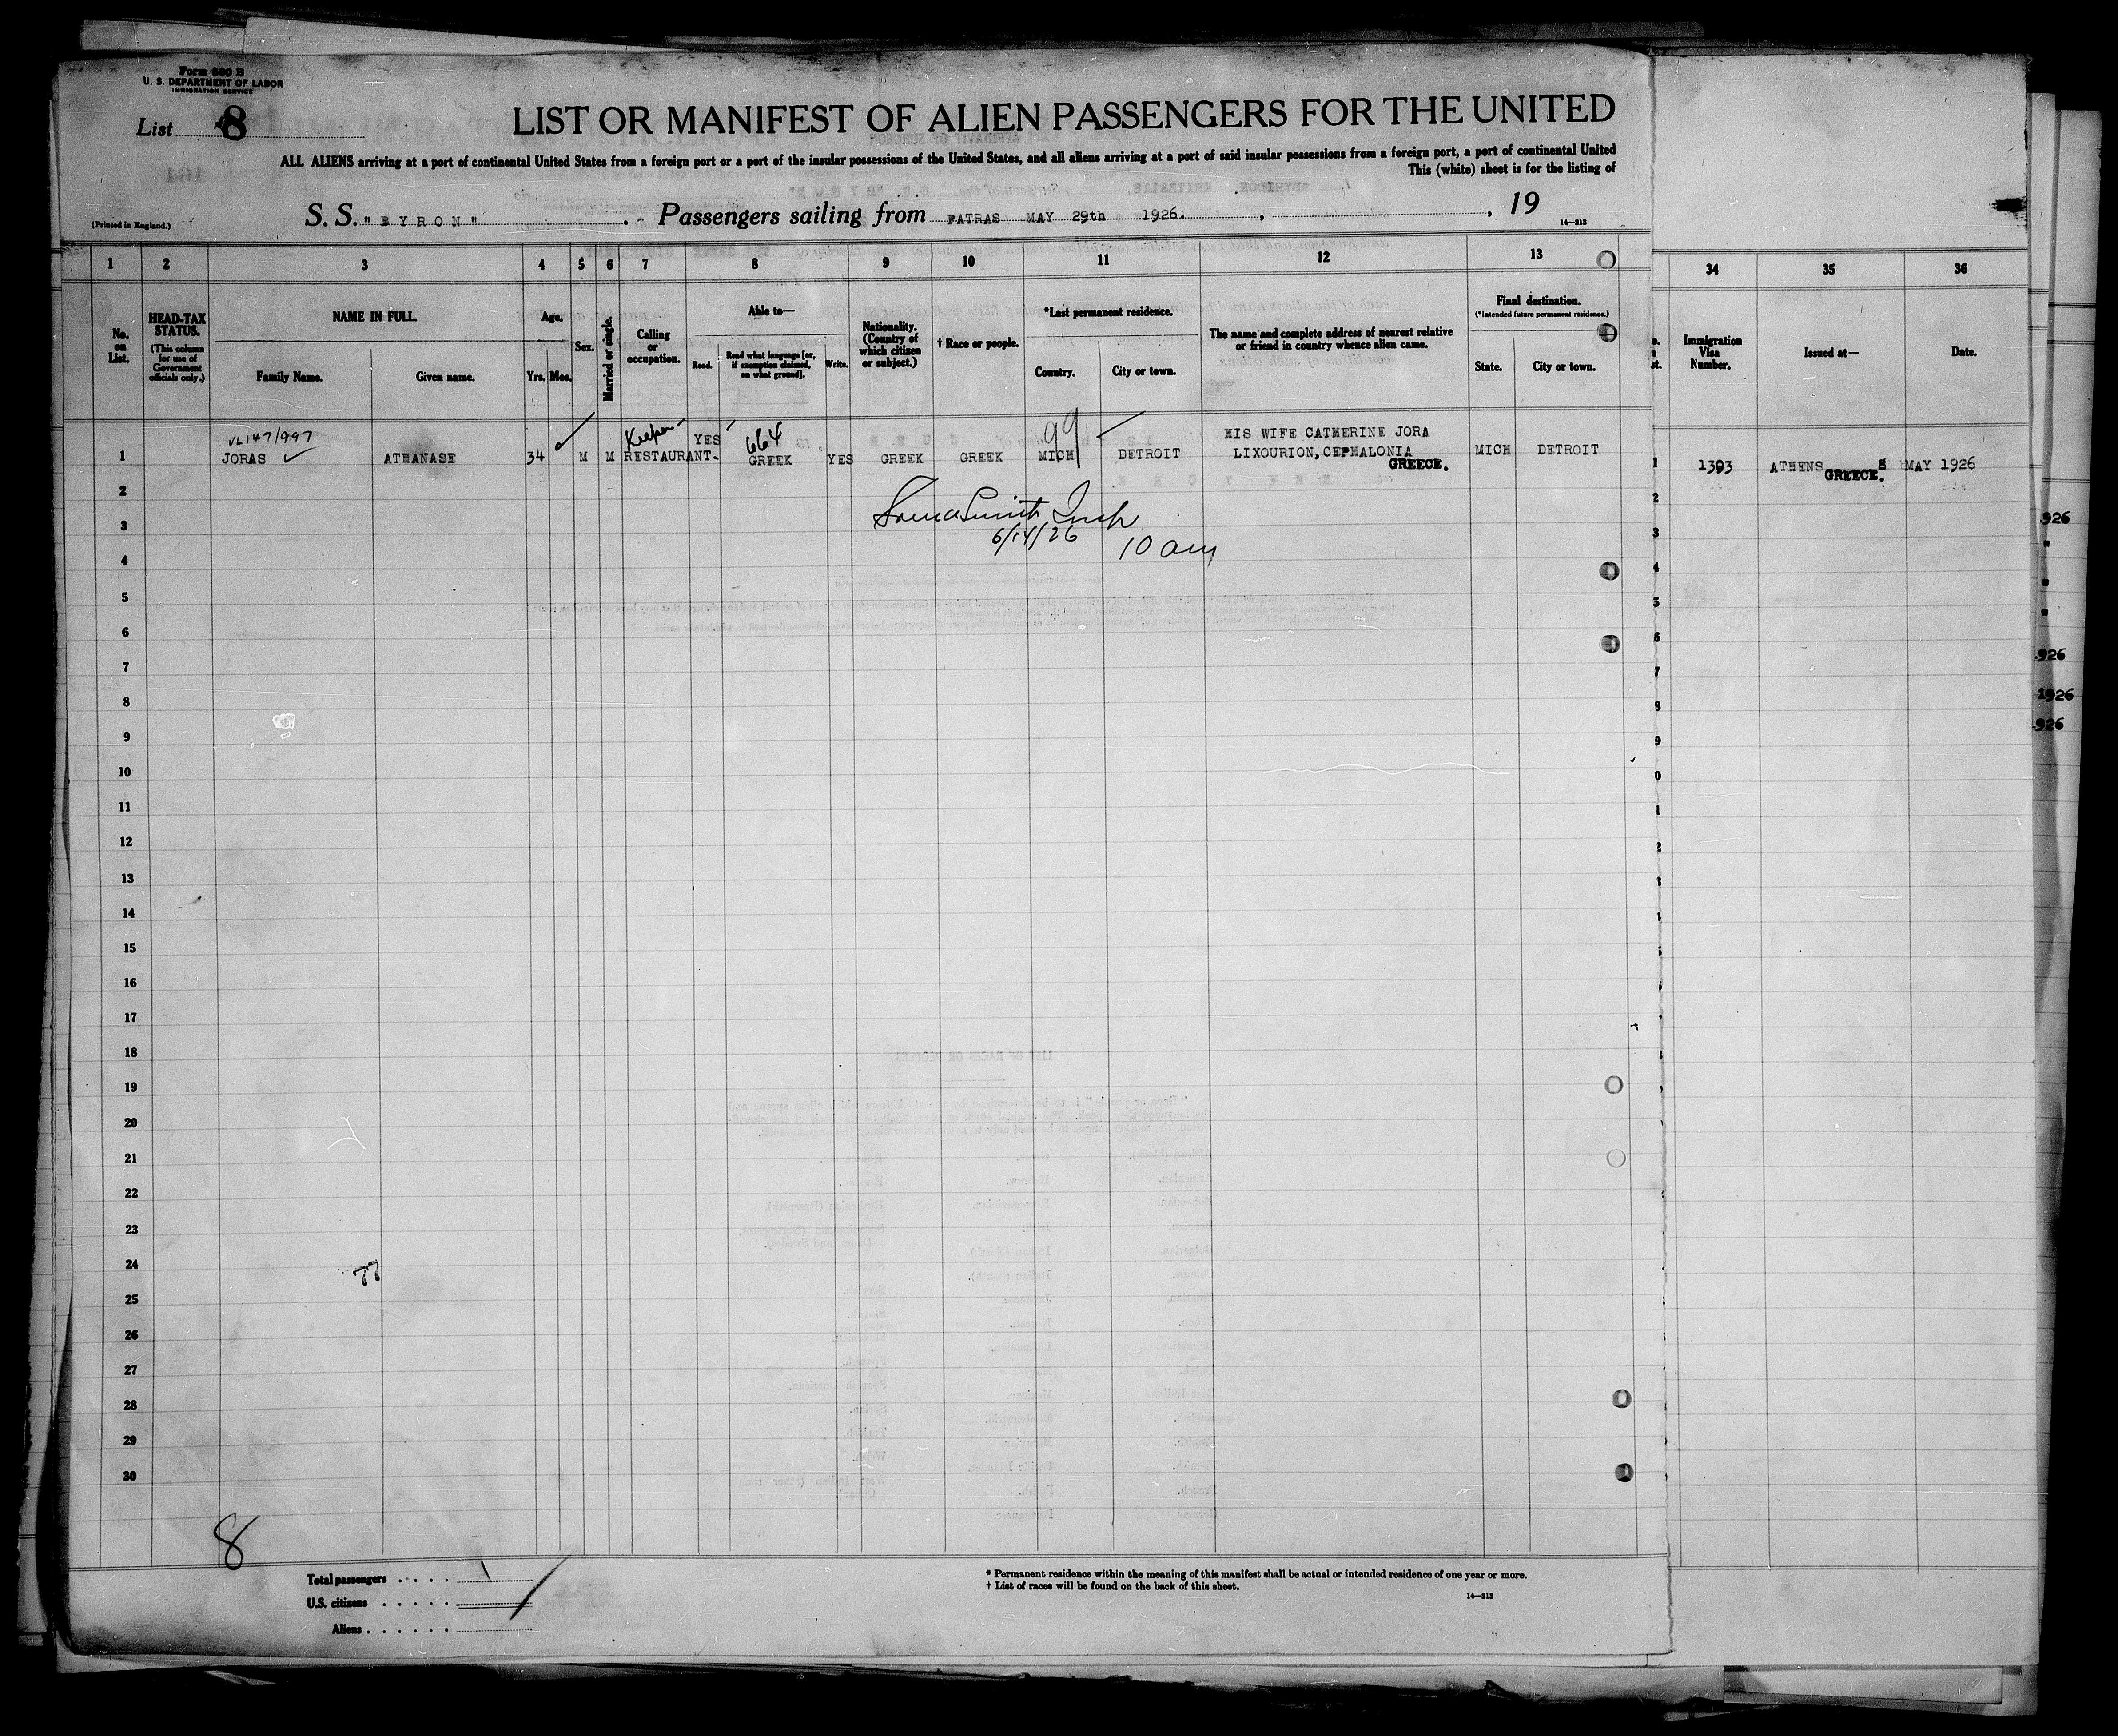 Form 500 B
U. S. DEPARTMENT OF LABOR
IMMIGRATION SERVICE
List 8
LIST OR MANIFEST OF ALIEN PASSENGERS FOR THE UNITED
ALL ALIENS arriving at a port of continental United States from a foreign port or a port of the insular possessions of the United States, and all aliens arriving at a port of said insular possessions from a foreign port, a port of continental United
This (white) sheet is for the listing of
(Printed in England.)
S. S. "BYRON" . Passengers sailing from PATRAS MAY 29th 1926. , , 19
14—313
1 2 3 4 5 6 7 8 9 10 11 12 13 34 35 36
No. on List.
HEAD-TAX STATUS.
(This column for use of Government officials only.)
NAME IN FULL.
Family Name. Given name.
Age.
Yrs. Mos.
Sex.
Married or single.
Calling or occupation.
Able to—
Read. Read what language [or, if exemption claimed, on what ground]. Write.
Nationality. (Country of which citizen or subject.)
† Race or people.
*Last permanent residence.
Country. City or town.
The name and complete address of nearest relative or friend in country whence alien came.
Final destination.
(*Intended future permanent residence.)
State. City or town.
Immigration Visa Number.
Issued at—
Date.
VL147/997 Keeper YES 664 99 HIS WIFE CATHERINE JORA
1 JORAS ATHANASE 34 M M RESTAURANT- GREEK YES GREEK GREEK MICH DETROIT LIXOURION, CEPHALONIA MICH DETROIT 1 1393 ATHENS 8 MAY 1926
GREECE. GREECE.
2
3
6/14/26 10 am
4
5
6
7
8
9
10
11
12
13
14
15
16
17
18
19
20
21
22
23
24
77
25
26
27
28
29
30
8
Total passengers . . . . 1
U.S. citizens . . . . .
Aliens . . . . . .
* Permanent residence within the meaning of this manifest shall be actual or intended residence of one year or more.
† List of races will be found on the back of this sheet.
14—313
926
926
1926
926